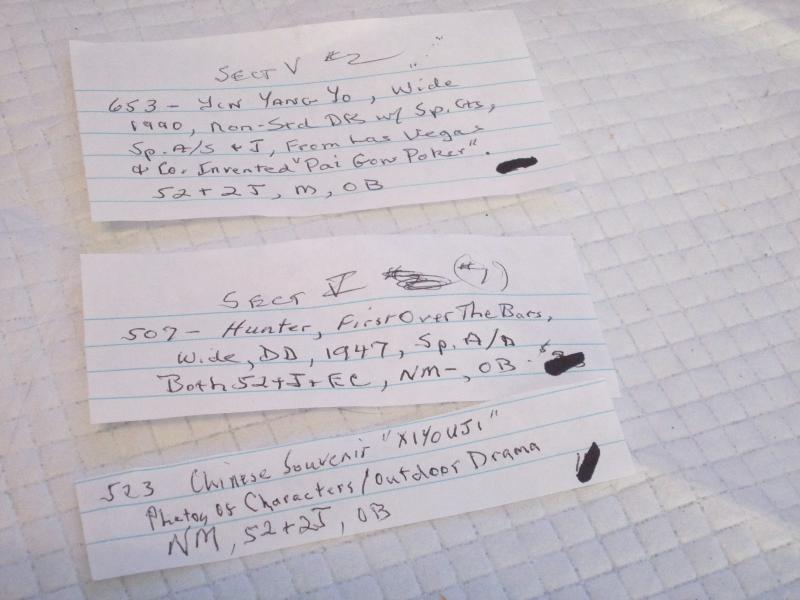 SECT V #2
653 - YIN YANG YO, Wide
1990, Non-Std DB w/ Sp. Cts,
Sp. A/S & J, From Las Vegas
& Co. Invented "Pai Gow Poker".
52+2J, M, OB
SECT V #7
507 - Hunter, First Over The Bars,
Wide, DD, 1947, Sp. A/A
Both 52+J+EC, NM-, OB
523 Chinese Souvenir "XIYOUJI"
Photos of Characters/Outdoor Drama
NM, 52+2J, OB